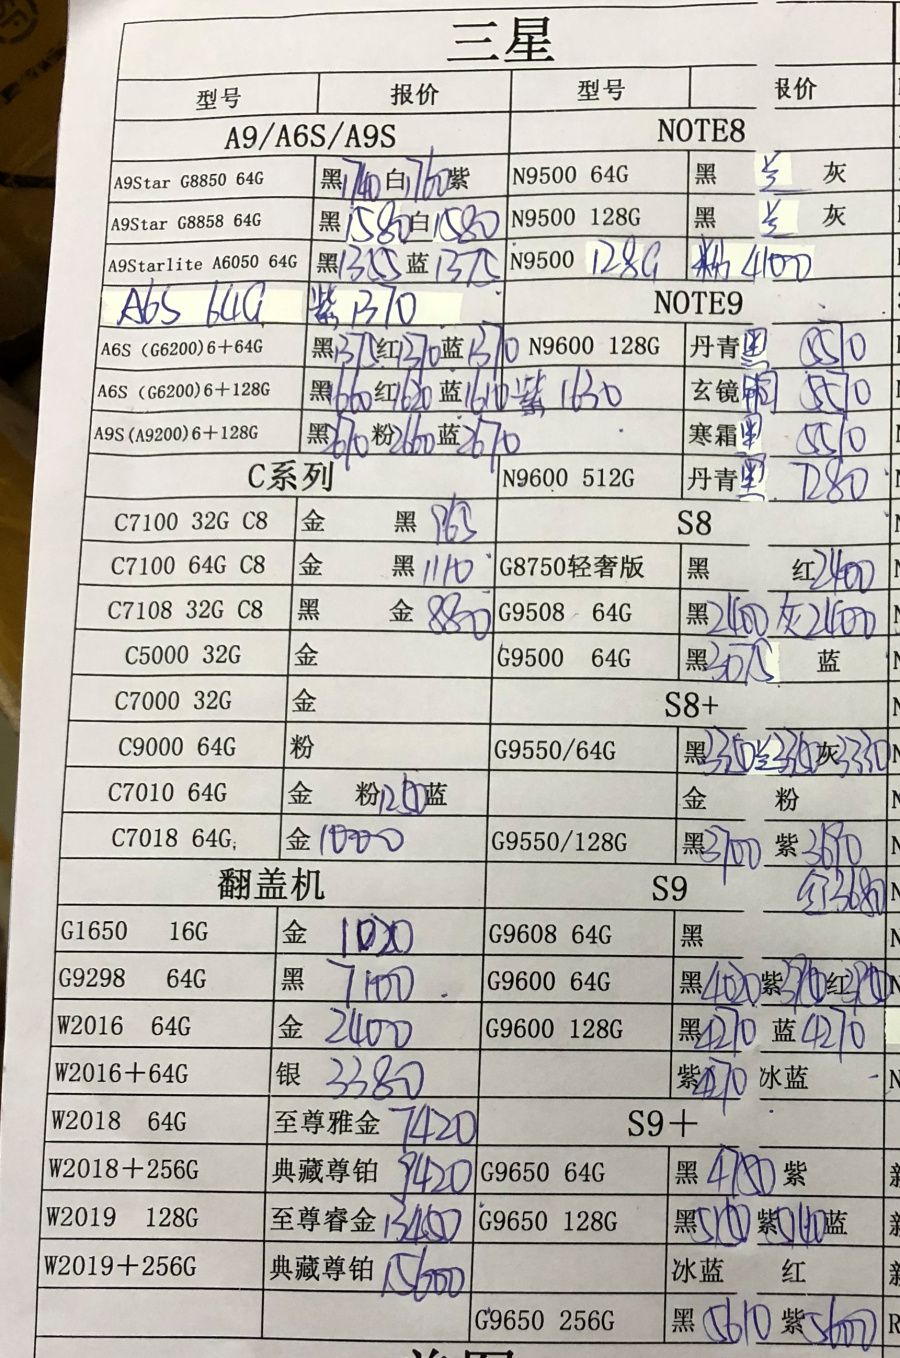 三星
型号 报价 型号 报价
A9/A6S/A9S NOTE8
A9Star G8850 64G 黑1740 白1760 紫 N9500 64G 黑 兰 灰
A9Star G8858 64G 黑1580 白1580 N9500 128G 黑 兰 灰
A9Starlite A6050 64G 黑1355 蓝1375 N9500 128G 粉 4100
A6S 64G 紫1370 NOTE9
A6S (G6200)6+64G 黑1375 红1370 蓝1370 N9600 128G 丹青黑 5510
A6S (G6200)6+128G 黑1660 红1620 蓝1610 紫1630 玄镜铜 5570
A9S(A9200)6+128G 黑2670 粉2660 蓝2670 寒霜 5510
C系列 N9600 512G 丹青黑 7280
C7100 32G C8 金 黑 965 S8
C7100 64G C8 金 黑 1110 G8750轻奢版 黑 红2400
C7108 32G C8 黑 金 880 G9508 64G 黑2400 灰2400
C5000 32G 金 G9500 64G 黑3075 蓝
C7000 32G 金 S8+
C9000 64G 粉 G9550/64G 黑3350 兰 灰3330
C7010 64G 金 粉1200 蓝 金 粉
C7018 64G; 金1000 G9550/128G 黑3700 紫3690
翻盖机 S9 红3680
G1650 16G 金 1020 G9608 64G 黑
G9298 64G 黑 7100 G9600 64G 黑4020 紫 红
W2016 64G 金 2400 G9600 128G 黑4270 蓝4270
W2016+64G 银 3380 紫4270 冰蓝
W2018 64G 至尊雅金 7420 S9+
W2018+256G 典藏尊铂 9420 G9650 64G 黑 4780 紫
W2019 128G 至尊睿金 13450 G9650 128G 黑5160 紫5140 蓝
W2019+256G 典藏尊铂 15600 冰蓝 红
G9650 256G 黑5610 紫5600